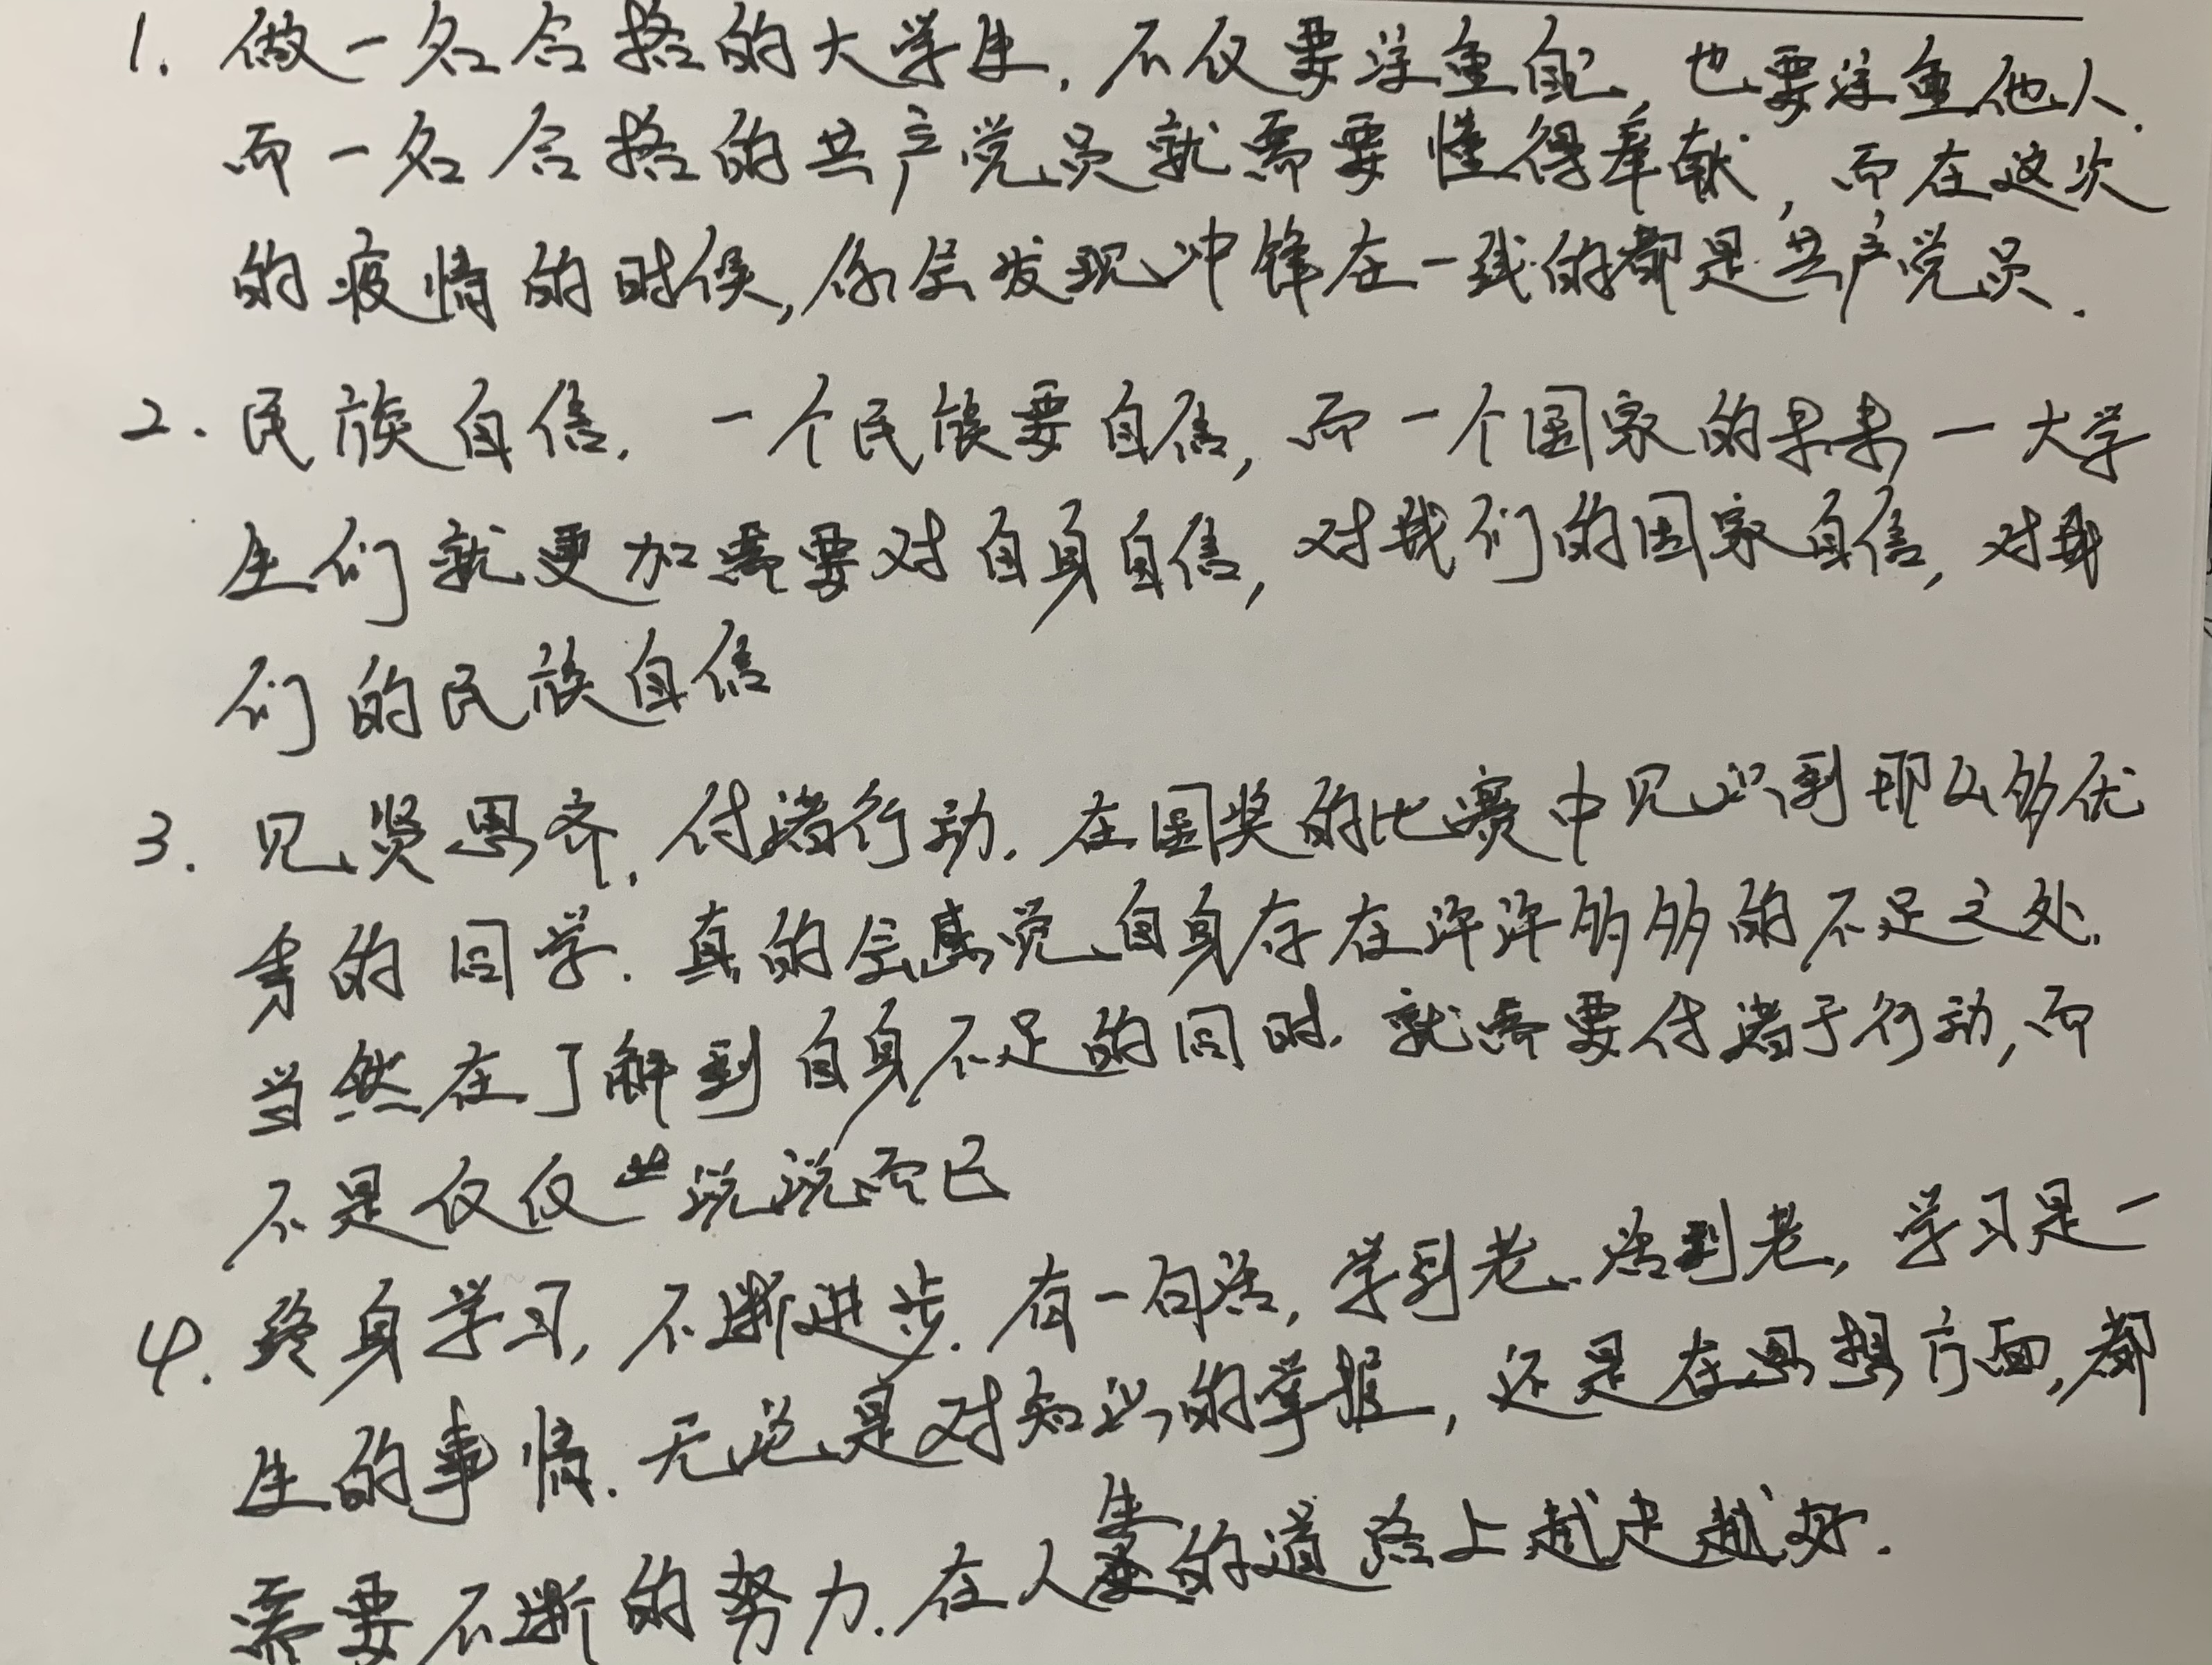 1. 做一名合格的大学生,不仅要注重自己,也要注重他人.
而一名合格的共产党员就需要懂得奉献,而在这次
的疫情的时候,你会发现冲锋在一线的都是共产党员.
2. 民族自信.一个民族要自信,而一个国家的未来一大学
生们就更加需要对自身自信,对我们的国家自信,对我
们的民族自信
3. 见贤思齐,付诸行动.在国奖的比赛中见识到那么多优
秀的同学.真的会感觉自身存在许许多多的不足之处.
当然在了解到自身不足的同时.就需要付诸于行动,而
不是仅仅 说说而已
4. 终身学习,不断进步.有一句话,学到老.活到老,学习是一
生的事情.无论是对知识的掌握,还是在思想方面,都
需要不断的努力.在人生的道路上越走越好.